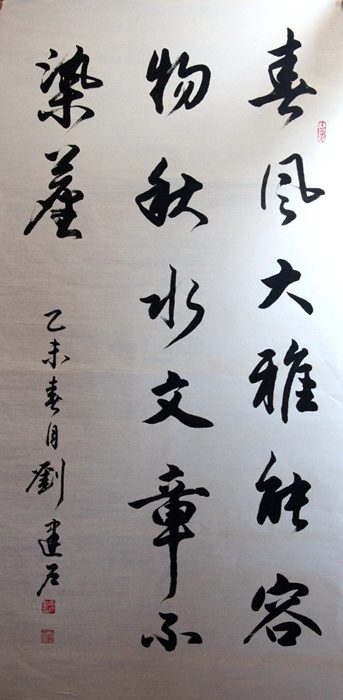 春风大雅能容
物秋水文章不
染塵
乙未春月劉建石